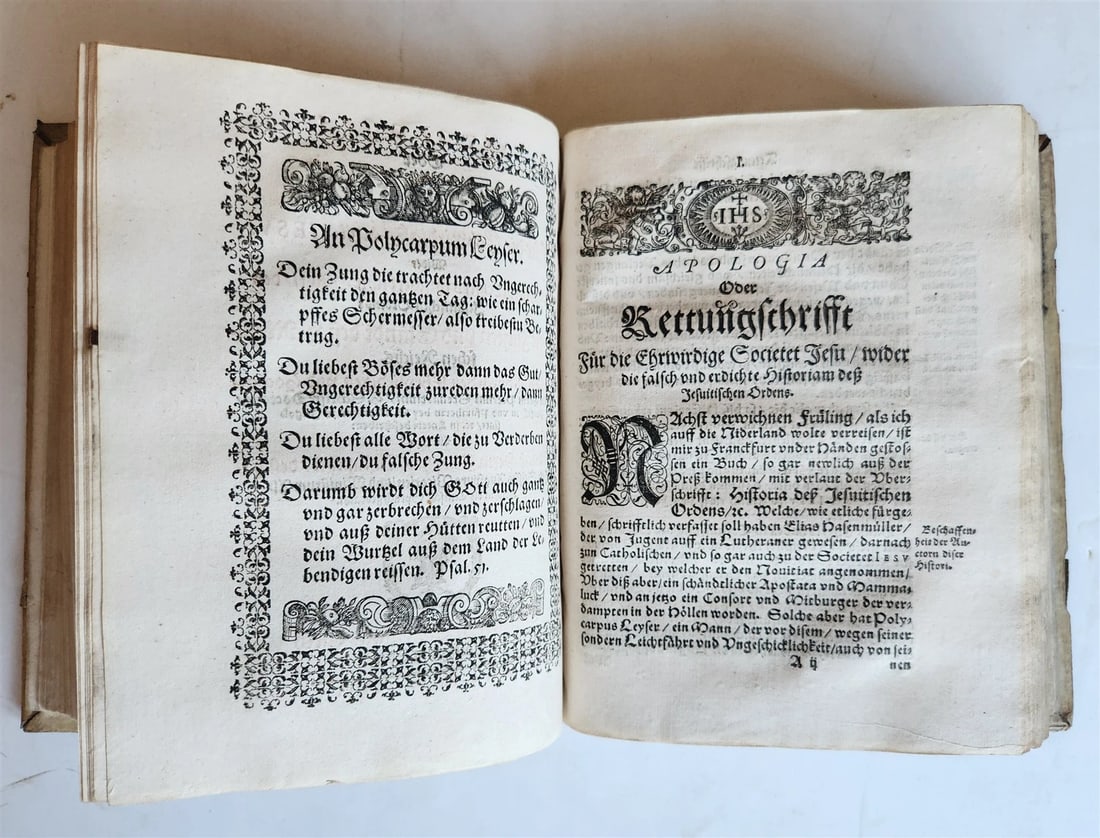 An Polycarpum Leyser.
Dein Zung die trachtet nach Vngerech-
tigkeit den gantzen Tag: wie ein schar-
pffes Schermesser/ also treibestu Be-
trug.
Du liebest Böses mehr dann das Gut/
Vngerechtigkeit zureden mehr/ dann
Gerechtigkeit.
Du liebest alle Wort/ die zu Verderben
dienen/ du falsche Zung.
Darumb wirdt dich GOtt auch gantz
vnd gar zerbrechen/ vnd zerschlagen/
vnd auß deiner Hütten reutten/ vnd
dein Wurtzel auß dem Land der Le-
bendigen reissen. Psal. 51.
1.
IHS
APOLOGIA
Oder
Rettungschrifft
Für die Ehrwirdige Societet Jesu/ wider
die falsch vnd erdichte Historiam deß
Jesuitischen Ordens.
NAchst verwichnen Früling/ als ich
auff die Niderland wolte verreisen/ ist
mir zu Franckfurt vnder Händen gestos-
sen ein Buch/ so gar newlich auß der
Preß kommen/ mit verlaut der Vber-
schrifft: Historia deß Jesuitischen
Ordens/ ꝛc. Welche/ wie etliche fürge-
ben/ schrifftlich verfasset soll haben Elias Hasenmüller/
der von Jugent auff ein Lutheraner gewesen/ darnach
zun Catholischen/ vnd so gar auch zu der Societet IESV
getretten/ bey welcher er den Nouitiat angenommen/
Vber diß aber/ ein schändtlicher Apostata vnd Mamma-
luck/ vnd an jetzo ein Consort vnd Mitburger der ver-
dampten in der Höllen worden. Solche aber hat Poly-
carpus Leyser/ ein Mann/ der vor disem/ wegen seiner
sondern Leichtfährt vnd Vngeschicklichkeit/ auch von sei-
A ij
nen
Beschaffen-
heit der Au-
ctorn diser
Histori.